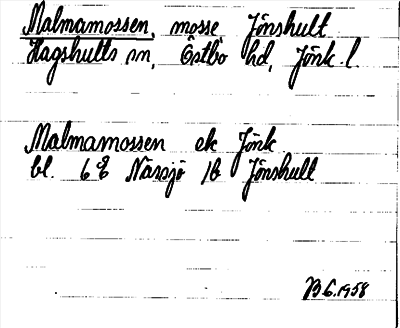 Malmamossen, mosse Jönshult
Hagshults sn, Östbo hd, Jönk. l.
Malmamossen ek Jönk
bl. 6E Nässjö 1b Jönshult
B6.1958